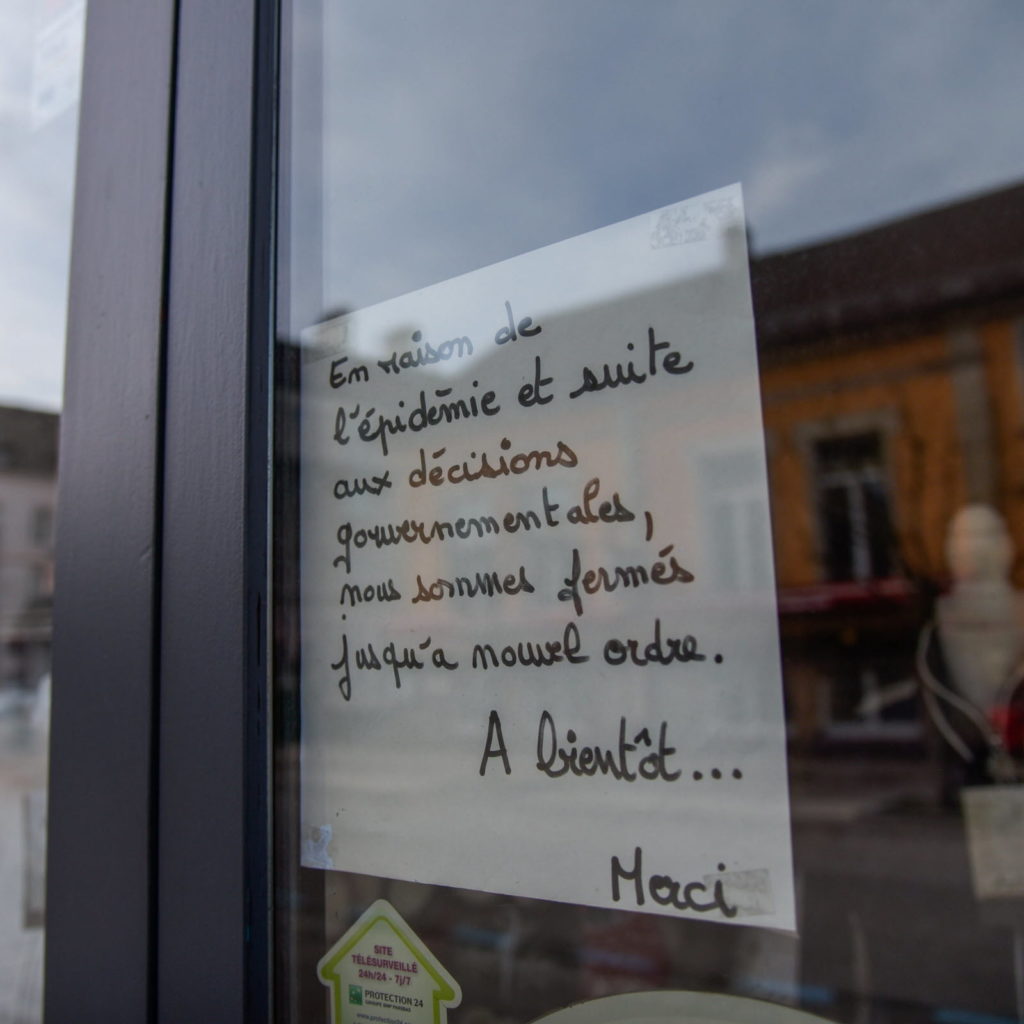 En raison de
l'épidémie et suite
aux décisions
gouvernementales,
nous sommes fermés
jusqu'a nouvel ordre.
A bientôt...
Merci
SITE
TÉLÉSURVEILLÉ
24h/24 - 7j/7
PROTECTION 24
GROUPE BNP PARIBAS